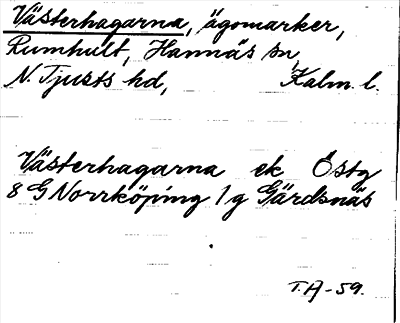 Västerhagarna, ägomarker,
Rumhult, Hannäs sn,
N. Tjusts hd, Kalm. l.
Västerhagarna ek Östg
8 G Norrköping 1g Gärdsnäs
T.A-59.